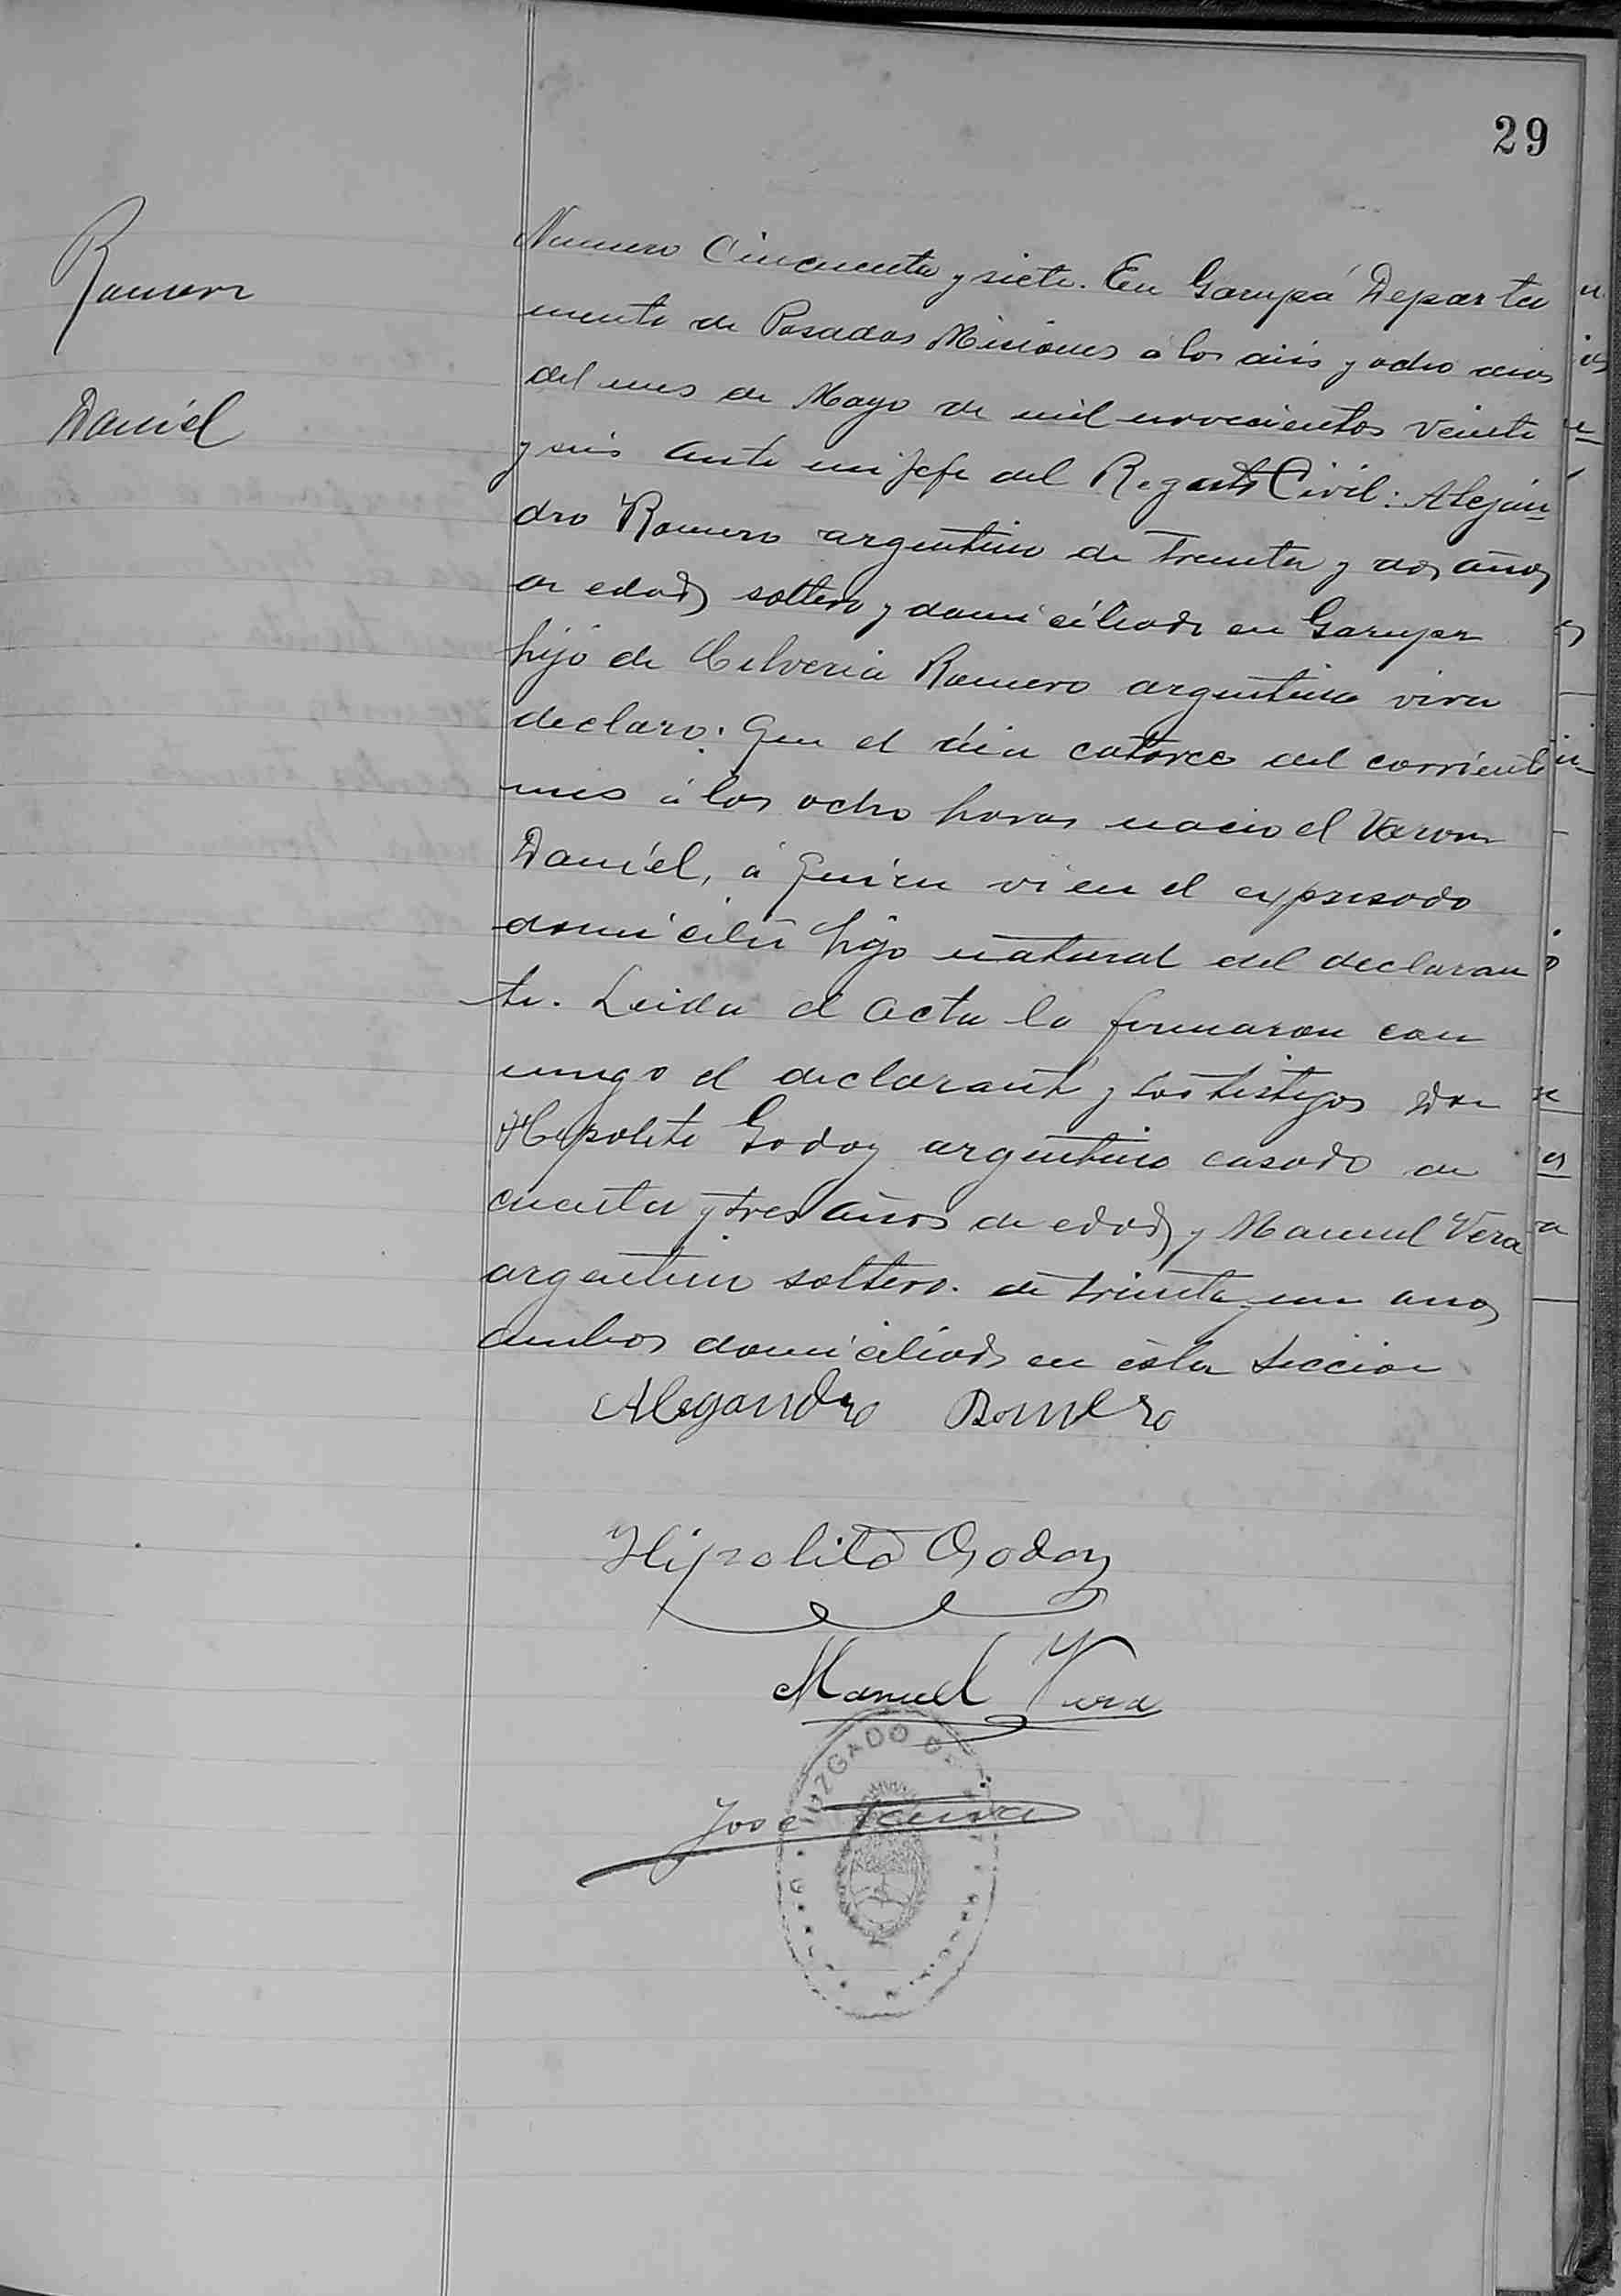 29
Romero
Daniel
Numero Cincuenta y siete. En Garupá Departa
mento de Posadas Misiones á los diés y ocho dias
del mes de Mayo de mil novecientos veinte
y seis ante mi Jefe del Registro Civil: Alejan
dro Romero argentino de treinta y dos años
de edad soltero y domiciliado en Garupa
hijo de Romero argentina viva
declaro: Que el dia catorce del corriente
mes á las ocho horas nacio el Varon
Daniel, á quien vi en el expresado
domicilio hijo natural del declaran
te. Leida el acta la firmaron con
migo el declarante y los testigos Don
Hipolito Godoy argentino casado de
cuenta y tres años de edad y Manuel Vera
argentino soltero. de treinta y un anos
ambos domiciliados en ésta Seccion
Alegandro Romero
Hipolito Godoy
Manuel Vera
JUZGADO DE
José